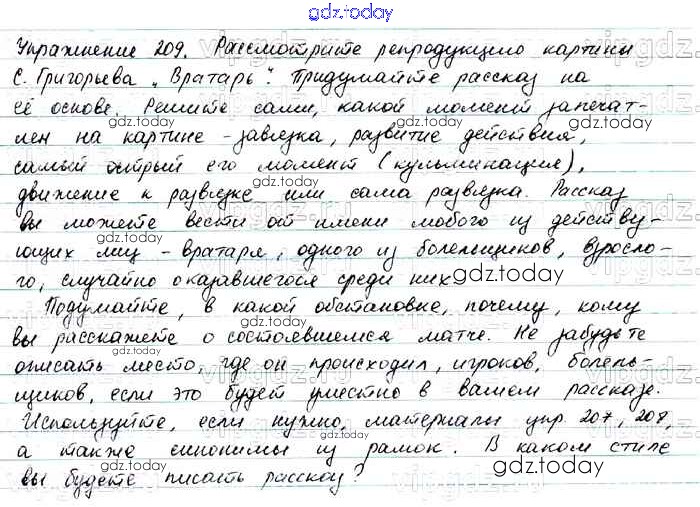 gdz.today
Упражнение 209. Рассмотрите репродукцию картины
С. Григорьева „Вратарь". Придумайте рассказ на
её основе. Решите сами, какой момент запечат-
лен на картине - завязка, развитие действия,
самый острый его момент (кульминация),
движение к развязке или сама развязка. Рассказ
вы можете вести от имени любого из действу-
ющих лиц - вратаря, одного из болельщиков, взросло-
го, случайно оказавшегося среди них.
Подумайте, в какой обстановке, почему, кому
вы расскажете о состоявшемся матче. Не забудьте
описать место, где он происходил, игроков, болель-
щиков, если это будет уместно в вашем рассказе.
Используйте, если нужно, материалы упр 207, 208,
а также синонимы из рамок. В каком стиле
вы будете писать рассказ?